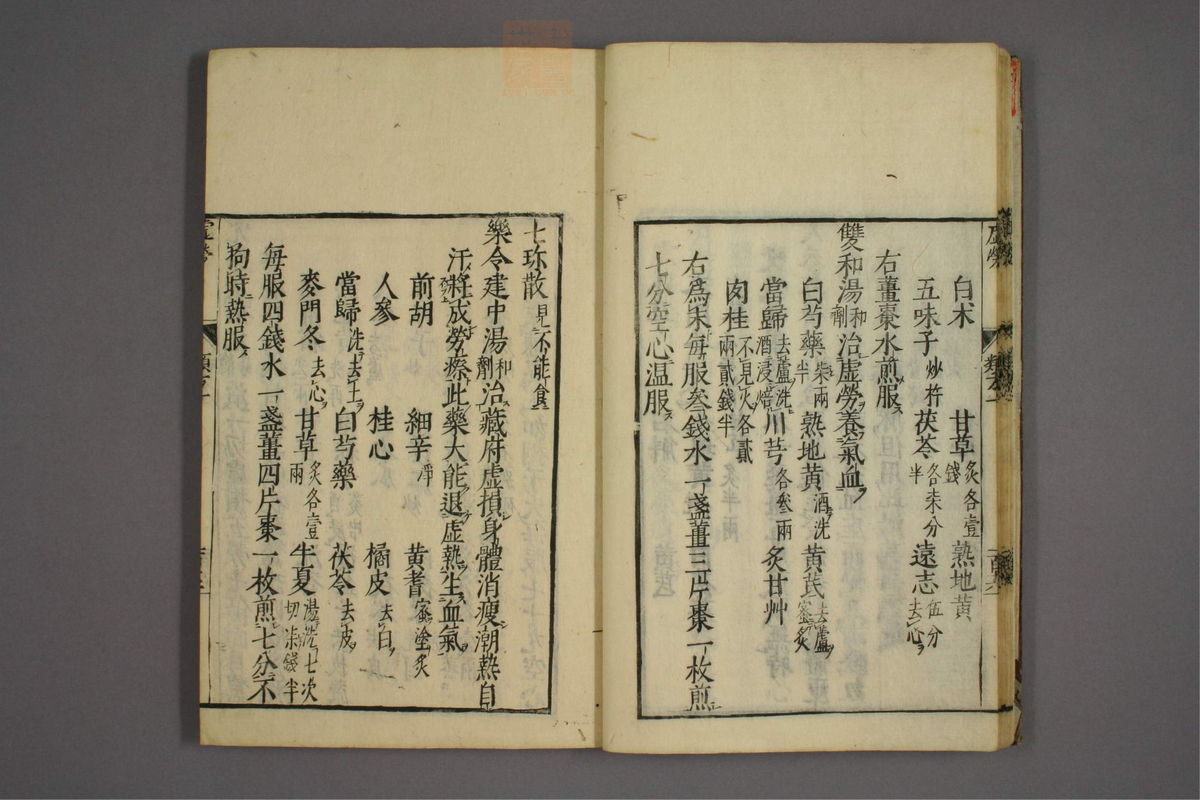 虛勞
白术 甘草炙各壹錢 熟地黃
五味子炒杵 茯苓各柒分半 遠志伍分去心
右薑棗水煎服
雙和湯和劑治虛勞養氣血
白芍藥柒兩半 熟地黃酒洗 黃芪去蘆蜜炙
當歸去蘆洗酒浸焙 川芎各叄兩 炙甘艸
肉桂不見火各貳兩貳錢半
右為末每服叄錢水一盞薑三片棗一枚煎
七分空心温服
七珎散見不能食
樂令建中湯和劑治藏府虚損身體消瘦潮熱自
汗將成勞瘵此藥大能退虚熱生血氣
前胡 細辛淨 黃耆蜜塗炙
人參 桂心 橘皮去白
當歸洗去土 白芍藥 茯苓去皮
麥門冬去心 甘草炙各壹兩 半夏湯洗七次切柒錢半
每服四錢水一盞薑四片棗一枚煎七分不
拘時熱服